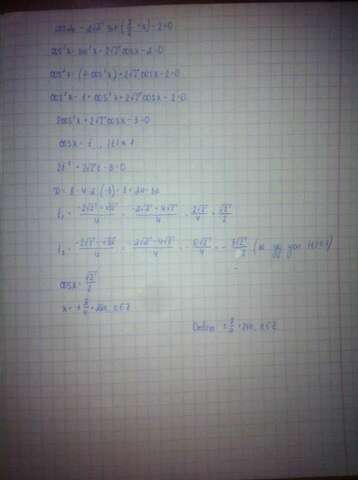 cos2x - 2√2 sin(π/2 + x) - 2 = 0
cos²x - sin²x + 2√2 cosx - 2 = 0
cos²x - (1 - cos²x) + 2√2 cosx - 2 = 0
cos²x - 1 + cos²x + 2√2 cosx - 2 = 0
2cos²x + 2√2 cosx - 3 = 0
cosx = t, |t| ≤ 1
2t² + 2√2 t - 3 = 0
D = 8 - 4·2·(-3) = 8 + 24 = 32
t₁ = (-2√2 + √32)/4 = (-2√2 + 4√2)/4 = 2√2/4 = √2/2
t₂ = (-2√2 - √32)/4 = (-2√2 - 4√2)/4 = -6√2/4 = -3√2/2 (не уд усл |t| ≤ 1)
cosx = √2/2
x = ± π/4 + 2πn, n∈Z
Ответ: ± π/4 + 2πn, n∈Z